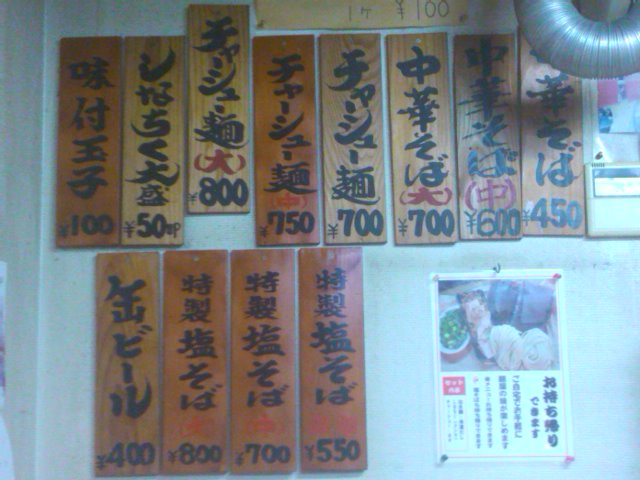 1ヶ ¥100
華そば
¥450
中華そば
(中)
¥600
中華そば
(大)
¥700
チャーシュー麺
¥700
チャーシュー麺
(中)
¥750
チャーシュー麺
(大)
¥800
しなちく大盛
¥50
味付玉子
¥100
特製塩そば
¥550
特製塩そば
¥700
特製塩そば
¥800
缶ビール
¥400
お持ち帰り
できます
ご自宅でお手軽に
セット